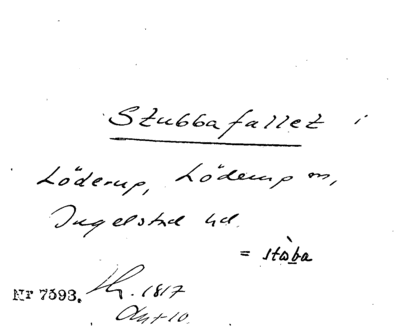 Stubbafallet i
Löderup, Löderup sn,
Ingelstad hd.
= stòba
Nr 7593. 1817
Akt 10.